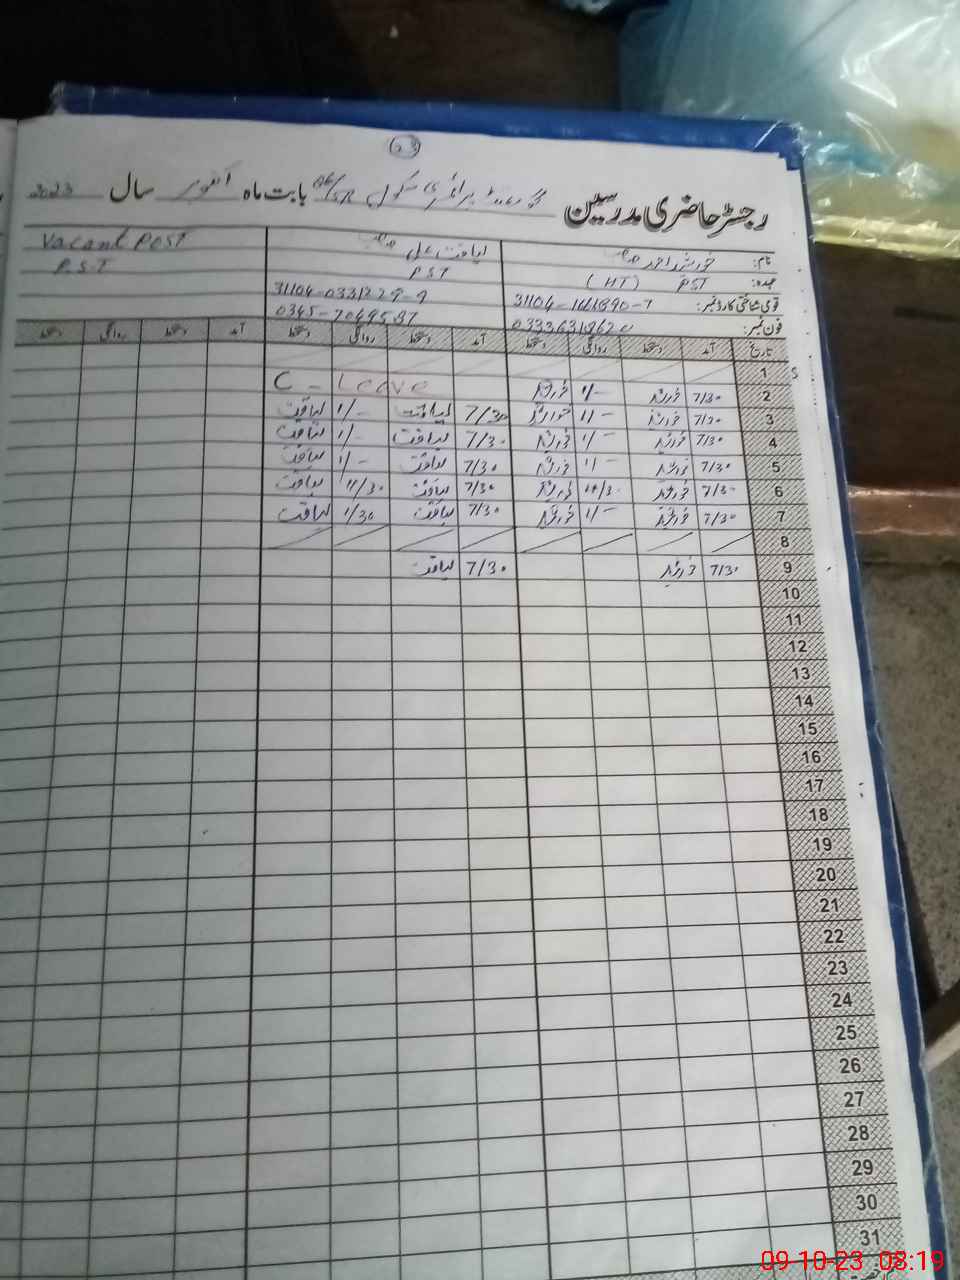 23
رجسٹر حاضری مدرسین گورنمنٹ پرائمری سکول 06/5R بابت ماہ اکتوبر سال 2023
نام: خورشید احمد صاحب لیاقت علی صاحب Vacant Post
عہدہ: PST (HT) PST P.S.T
قومی شناختی کارڈ نمبر: 31104-0331229-9
فون نمبر: 0345-7049587
تاریخ آمد دستخط روانگی دستخط آمد دستخط روانگی دستخط آمد دستخط روانگی دستخط
1 S
2 7/30 خورشید 1/- خورشید C - Leave
3 7/30 خورشید 1/- خورشید 7/30 لیاقت 1/- لیاقت
4 7/30 خورشید 1/- خورشید 7/30 لیاقت 1/- لیاقت
5 7/30 خورشید 1/- خورشید 7/30 لیاقت 1/- لیاقت
6 7/30 خورشید خورشید 7/30 لیاقت 11/30 لیاقت
7 7/30 خورشید 1/- خورشید 7/30 لیاقت 1/30 لیاقت
8
9 7/30 خورشید 7/30 لیاقت
10
11
12
13
14
15
16
17
18
19
20
21
22
23
24
25
26
27
28
29
30
31
09-10-23 08:19